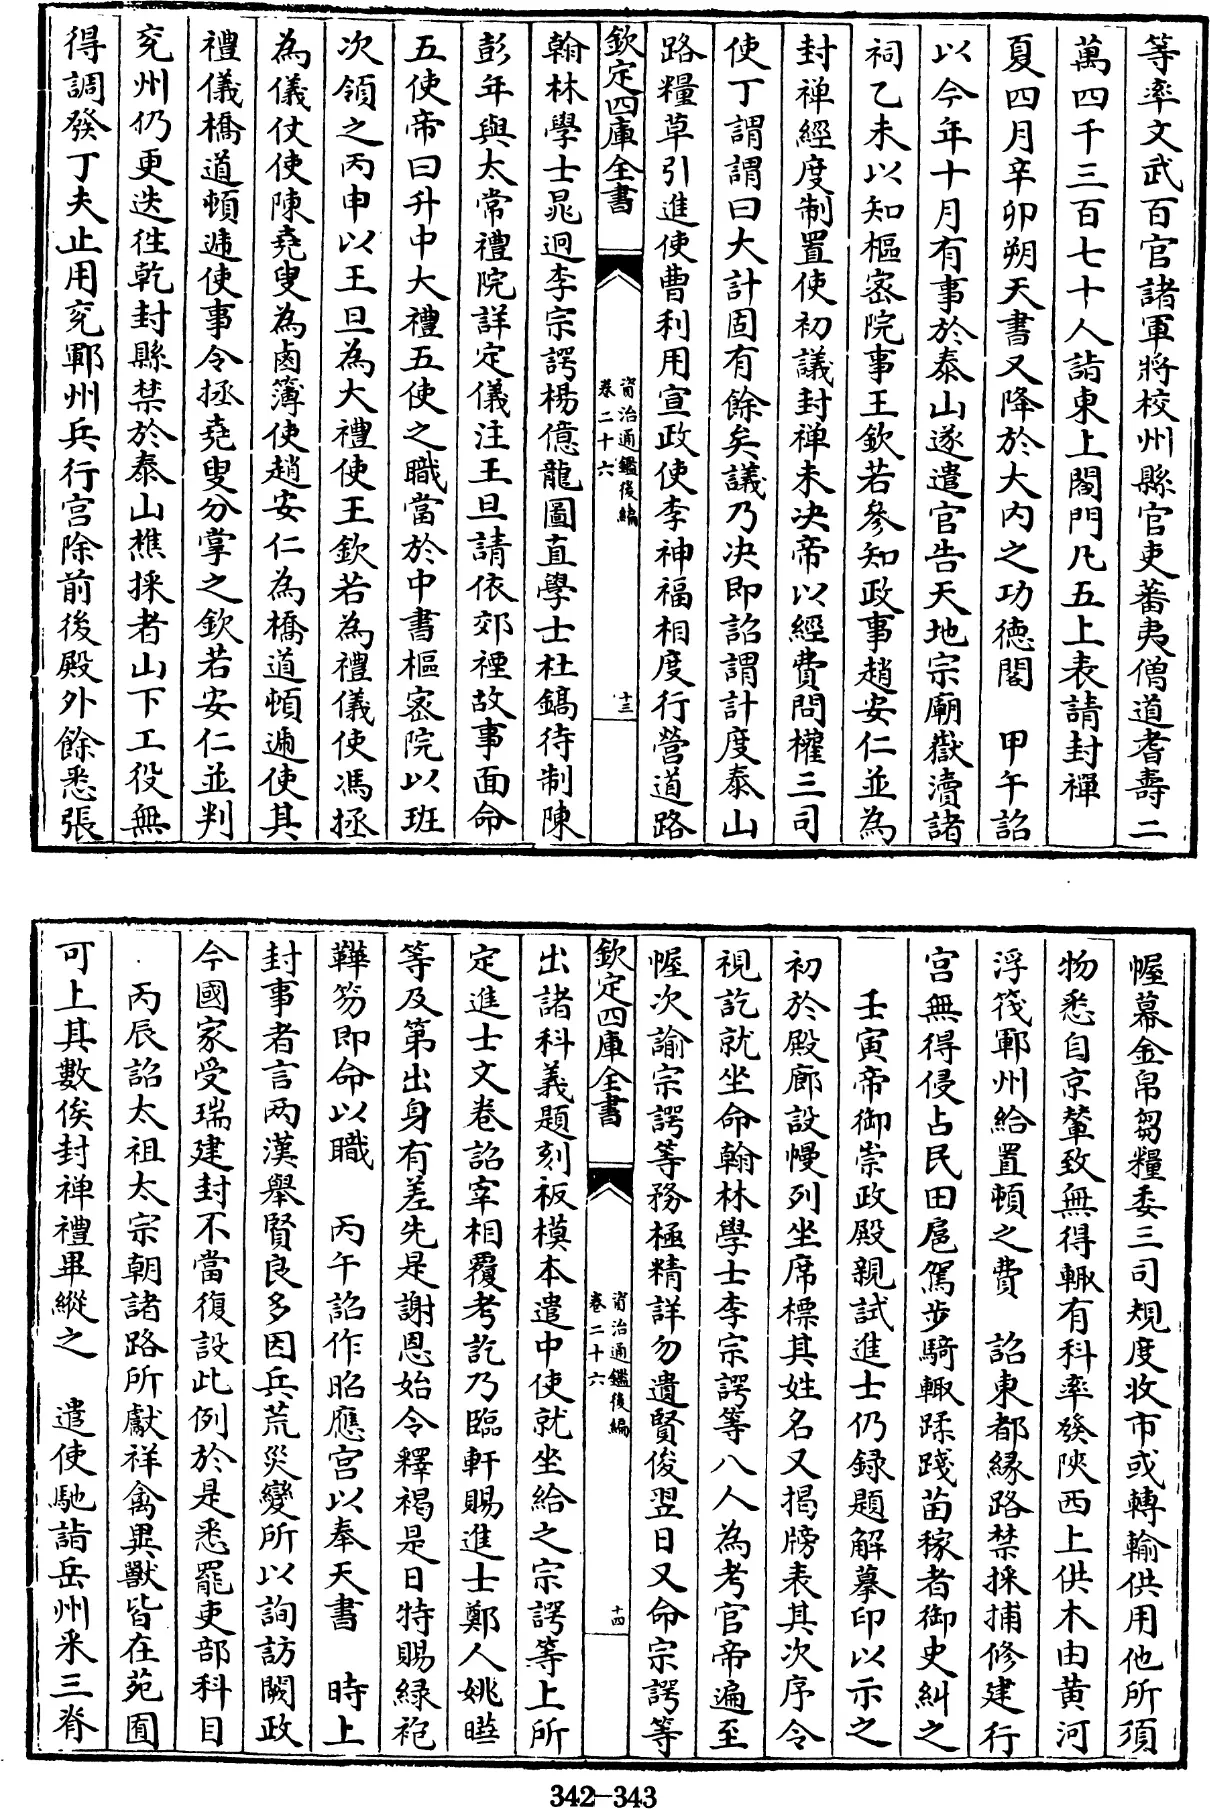 等率文武百官諸軍將校州縣官吏蕃夷僧道耆壽二
萬四千三百七十人詣東上閤門凡五上表請封禪
夏四月辛卯朔天書又降於大內之功德閣　甲午詔
以今年十月有事於泰山遂遣官告天地宗廟嶽瀆諸
祠乙未以知樞密院事王欽若參知政事趙安仁並為
封禪經度制置使初議封禪未決帝以經費問權三司
使丁謂謂曰大計固有餘矣議乃决即詔謂計度泰山
路糧草引進使曹利用宣政使李神福相度行營道路
欽定四庫全書
資治通鑑後編
卷二十六
十三
翰林學士晁迥李宗諤楊億龍圖直學士杜鎬待制陳
彭年與太常禮院詳定儀注王旦請依郊禋故事面命
五使帝曰升中大禮五使之職當於中書樞密院以班
次領之丙申以王旦為大禮使王欽若為禮儀使馮拯
為儀仗使陳堯叟為鹵簿使趙安仁為橋道頓逓使其
禮儀橋道頓逓使事令拯堯叟分掌之欽若安仁並判
兗州仍更迭往乾封縣禁於泰山樵採者山下工役無
得調發丁夫止用兗鄆州兵行宮除前後殿外餘悉張
幄幕金帛芻糧委三司規度收市或轉輸供用他所須
物悉自京輦致無得輙有科率發陝西上供木由黃河
浮筏鄆州給置頓之費　詔東都緣路禁採捕修建行
宮無得侵占民田扈駕步騎輙蹂踐苗稼者御史糾之
壬寅帝御崇政殿親試進士仍録題解摹印以示之
初於殿廊設幔列坐席標其姓名又揭牓表其次序令
視訖就坐命翰林學士李宗諤等八人為考官帝遍至
幄次諭宗諤等務極精詳勿遺賢俊翌日又命宗諤等
欽定四庫全書
資治通鑑後編
卷二十六
十四
出諸科義題刻板模本遣中使就坐給之宗諤等上所
定進士文卷詔宰相覆考訖乃臨軒賜進士鄭人姚曄
等及第出身有差先是謝恩始令釋褐是日特賜緑袍
鞾笏即命以職　丙午詔作昭應宮以奉天書　時上
封事者言兩漢舉賢良多因兵荒災變所以詢訪闕政
今國家受瑞建封不當復設此例於是悉罷吏部科目
丙辰詔太祖太宗朝諸路所獻祥禽異獸皆在苑囿
可上其數俟封禪禮畢縱之　遣使馳詣岳州采三脊
342-343